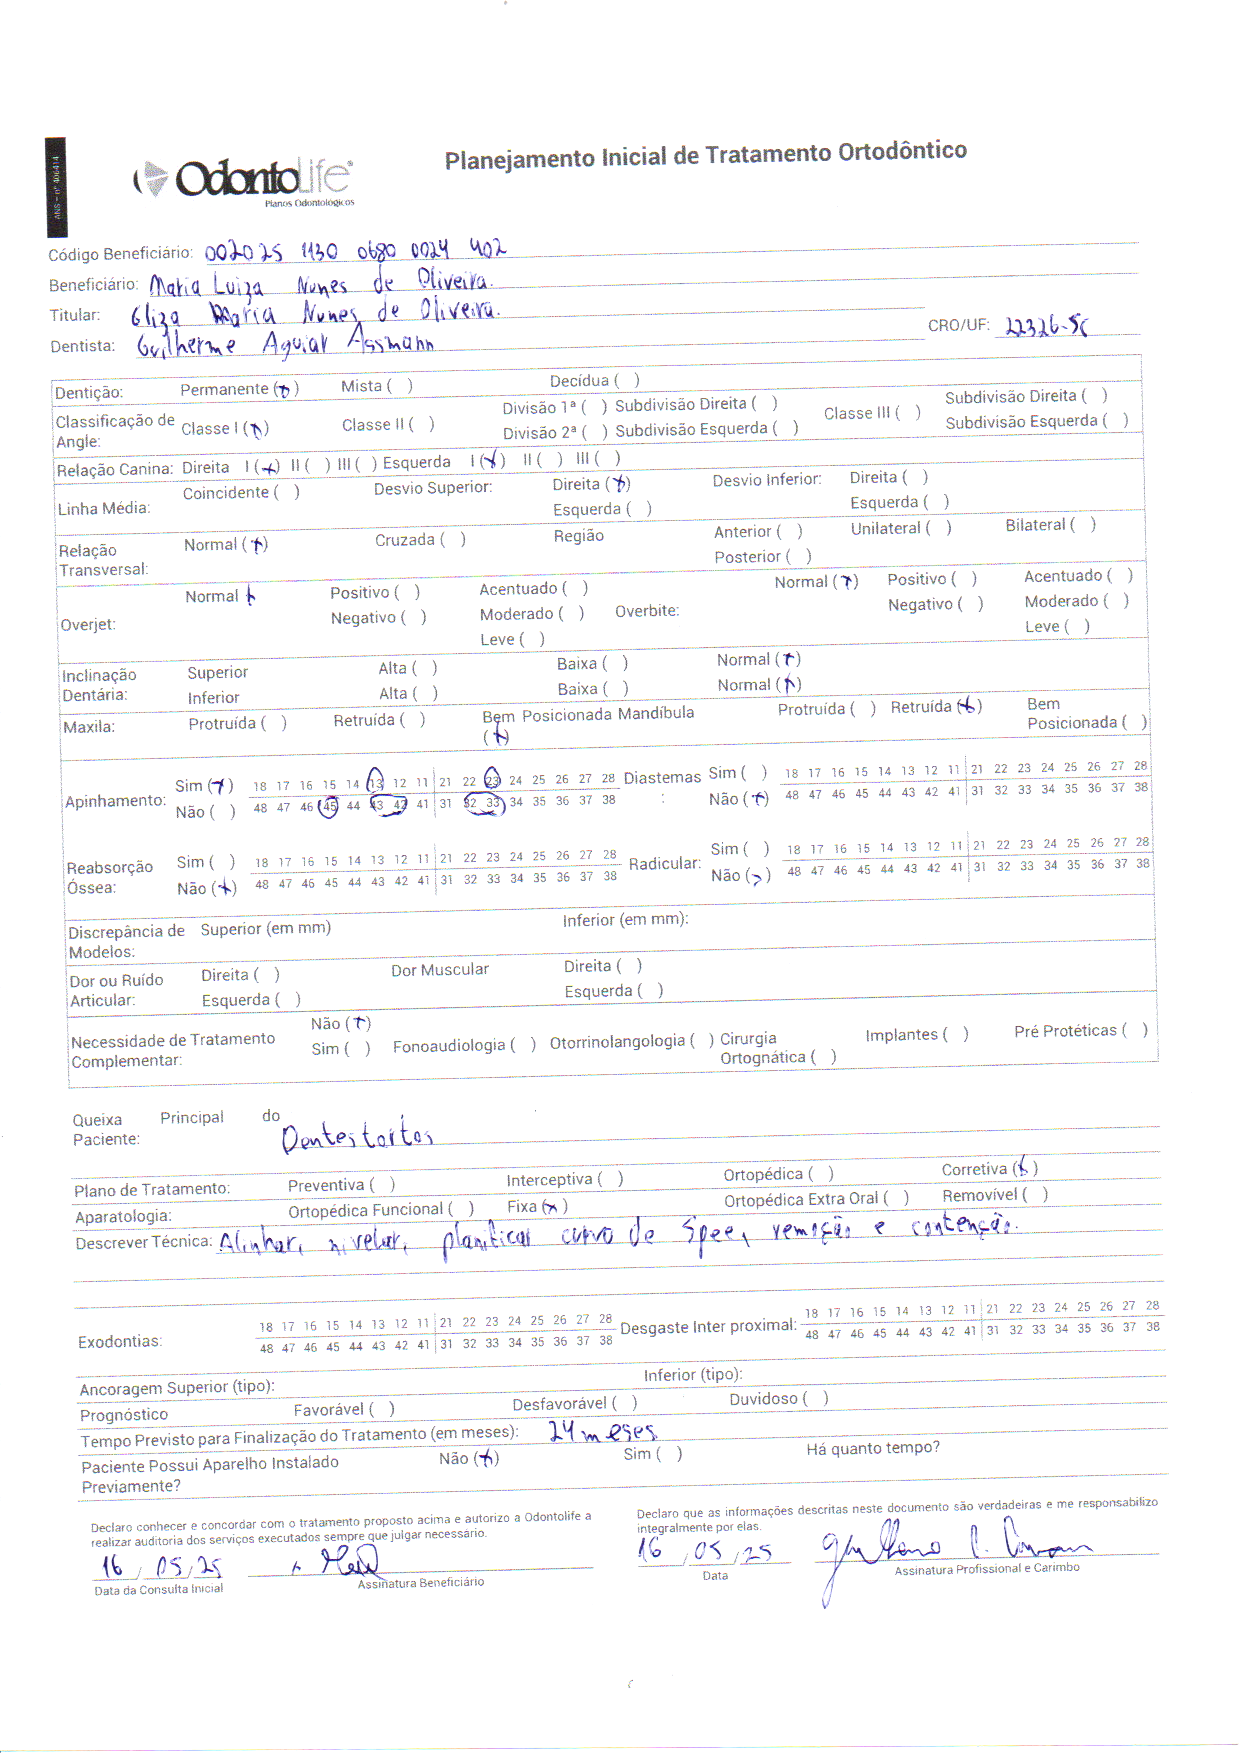 Planejamento Inicial de Tratamento Ortodôntico
ANS - nº 406414
OdontoLife®
Planos Odontológicos
Código Beneficiário: 002025 1130 0680 0024 402
Beneficiário: Maria Luiza Nunes de Oliveira.
Titular: Eliza Maria Nunes de Oliveira.
Dentista: Guilherme Aguiar Assmann CRO/UF: 22326-SC
Dentição: Permanente (x) Mista ( ) Decídua ( )
Classificação de Angle: Classe I (x) Classe II ( ) Divisão 1ª ( ) Subdivisão Direita ( ) Classe III ( ) Subdivisão Direita ( )
Divisão 2ª ( ) Subdivisão Esquerda ( ) Subdivisão Esquerda ( )
Relação Canina: Direita I (x) II ( ) III ( ) Esquerda I (x) II ( ) III ( )
Linha Média: Coincidente ( ) Desvio Superior: Direita (x) Desvio Inferior: Direita ( )
Esquerda ( ) Esquerda ( )
Relação Transversal: Normal (x) Cruzada ( ) Região Anterior ( ) Unilateral ( ) Bilateral ( )
Posterior ( )
Overjet: Normal x Positivo ( ) Acentuado ( ) Overbite: Normal (x) Positivo ( ) Acentuado ( )
Negativo ( ) Moderado ( ) Negativo ( ) Moderado ( )
Leve ( ) Leve ( )
Inclinação Dentária: Superior Alta ( ) Baixa ( ) Normal (x)
Inferior Alta ( ) Baixa ( ) Normal (x)
Maxila: Protruída ( ) Retruída ( ) Bem Posicionada (x) Mandíbula Protruída ( ) Retruída (x) Bem Posicionada ( )
Apinhamento: Sim (x) 18 17 16 15 14 13 12 11 21 22 23 24 25 26 27 28 Diastemas: Sim ( ) 18 17 16 15 14 13 12 11 21 22 23 24 25 26 27 28
Não ( ) 48 47 46 45 44 43 42 41 31 32 33 34 35 36 37 38 Não (x) 48 47 46 45 44 43 42 41 31 32 33 34 35 36 37 38
Reabsorção Óssea: Sim ( ) 18 17 16 15 14 13 12 11 21 22 23 24 25 26 27 28 Radicular: Sim ( ) 18 17 16 15 14 13 12 11 21 22 23 24 25 26 27 28
Não (x) 48 47 46 45 44 43 42 41 31 32 33 34 35 36 37 38 Não (x) 48 47 46 45 44 43 42 41 31 32 33 34 35 36 37 38
Discrepância de Modelos: Superior (em mm) Inferior (em mm):
Dor ou Ruído Articular: Direita ( ) Dor Muscular Direita ( )
Esquerda ( ) Esquerda ( )
Necessidade de Tratamento Complementar: Não (x)
Sim ( ) Fonoaudiologia ( ) Otorrinolangologia ( ) Cirurgia Ortognática ( ) Implantes ( ) Pré Protéticas ( )
Queixa Principal do Paciente: Dentes tortos
Plano de Tratamento: Preventiva ( ) Interceptiva ( ) Ortopédica ( ) Corretiva (x)
Aparatologia: Ortopédica Funcional ( ) Fixa (x) Ortopédica Extra Oral ( ) Removível ( )
Descrever Técnica: Alinhar, nivelar, planificar curva de Spee, remoção e contenção.
Exodontias: 18 17 16 15 14 13 12 11 21 22 23 24 25 26 27 28 Desgaste Inter proximal: 18 17 16 15 14 13 12 11 21 22 23 24 25 26 27 28
48 47 46 45 44 43 42 41 31 32 33 34 35 36 37 38 48 47 46 45 44 43 42 41 31 32 33 34 35 36 37 38
Ancoragem Superior (tipo): Inferior (tipo):
Prognóstico Favorável ( ) Desfavorável ( ) Duvidoso ( )
Tempo Previsto para Finalização do Tratamento (em meses): 24 meses
Paciente Possui Aparelho Instalado Previamente? Não (x) Sim ( ) Há quanto tempo?
Declaro conhecer e concordar com o tratamento proposto acima e autorizo a Odontolife a
realizar auditoria dos serviços executados sempre que julgar necessario.
Declaro que as informações descritas neste documento são verdadeiras e me responsabilizo
integralmente por elas.
16 / 05 / 25
Data da Consulta Inicial Assinatura Beneficiário
16 / 05 / 25
Data Assinatura Profissional e Carimbo